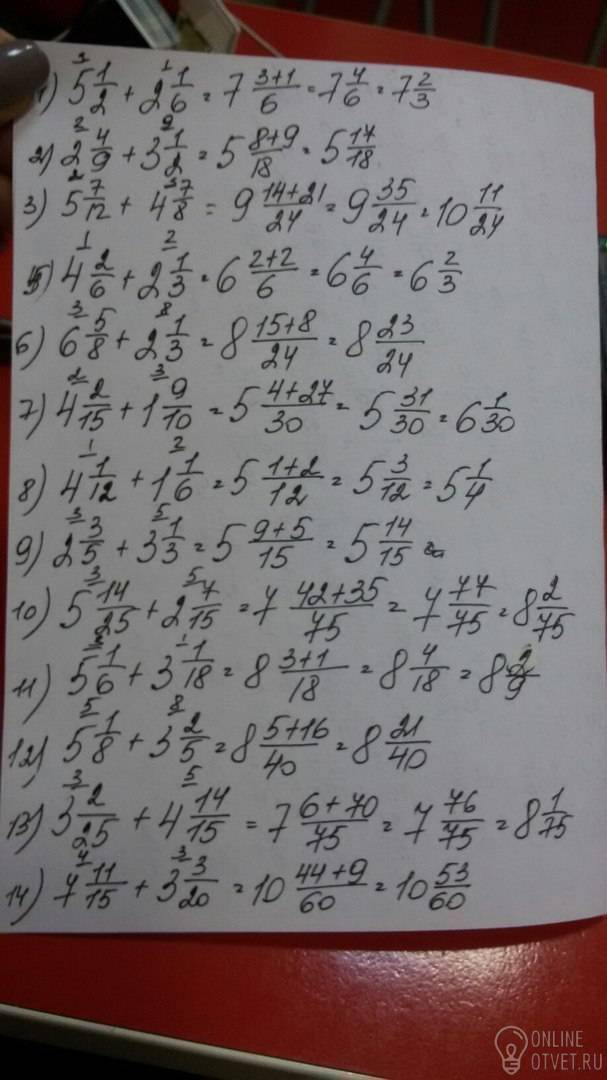 1) 5 1/2 + 2 1/6 = 7 3+1/6 = 7 4/6 = 7 2/3
2) 2 4/9 + 3 1/2 = 5 8+9/18 = 5 17/18
3) 5 7/12 + 4 7/8 = 9 14+21/24 = 9 35/24 = 10 11/24
5) 4 2/6 + 2 1/3 = 6 2+2/6 = 6 4/6 = 6 2/3
6) 6 5/8 + 2 1/3 = 8 15+8/24 = 8 23/24
7) 4 2/15 + 1 9/10 = 5 4+27/30 = 5 31/30 = 6 1/30
8) 4 1/12 + 1 1/6 = 5 1+2/12 = 5 3/12 = 5 1/4
9) 2 3/5 + 3 1/3 = 5 9+5/15 = 5 14/15
10) 5 14/25 + 2 7/15 = 7 42+35/75 = 7 77/75 = 8 2/75
11) 5 1/6 + 3 1/18 = 8 3+1/18 = 8 4/18 = 8 2/9
12) 5 1/8 + 3 2/5 = 8 5+16/40 = 8 21/40
13) 3 2/25 + 4 14/15 = 7 6+70/75 = 7 76/75 = 8 1/75
14) 7 11/15 + 3 3/20 = 10 44+9/60 = 10 53/60
ONLINE
OTVET.RU